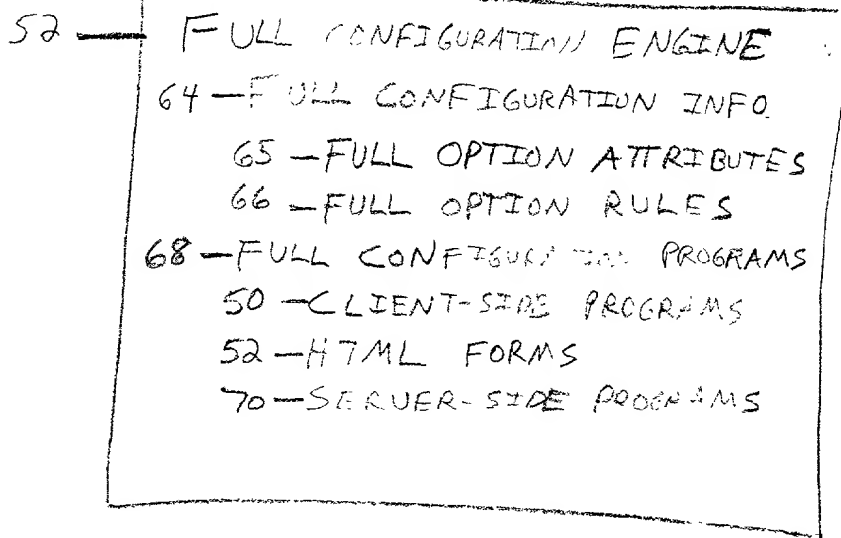 52 — FULL CONFIGURATION ENGINE
64 — FULL CONFIGURATION INFO.
65 — FULL OPTION ATTRIBUTES
66 — FULL OPTION RULES
68 — FULL CONFIGURATION PROGRAMS
50 — CLIENT-SIDE PROGRAMS
52 — HTML FORMS
70 — SERVER-SIDE PROGRAMS